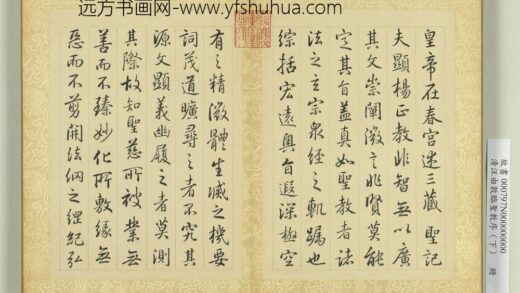 远方书画网-www.yfshuhua.com
皇帝在春宮述三藏聖記
夫顯楊正教非智無以廣
其文崇闡微言非賢莫能
定其旨蓋真如聖教者諸
法之玄宗衆經之軌躅也
綜括宏遠奧旨遐深極空
有之精微體生滅之機要
詞茂道曠尋之者不究其
源文顯義幽履之者莫測
其際故知聖慈所被業無
善而不臻妙化所敷緣無
惡而不剪開法網之綱紀弘
故書000797N000000000
清汪由敦臨聖教序(下) 冊